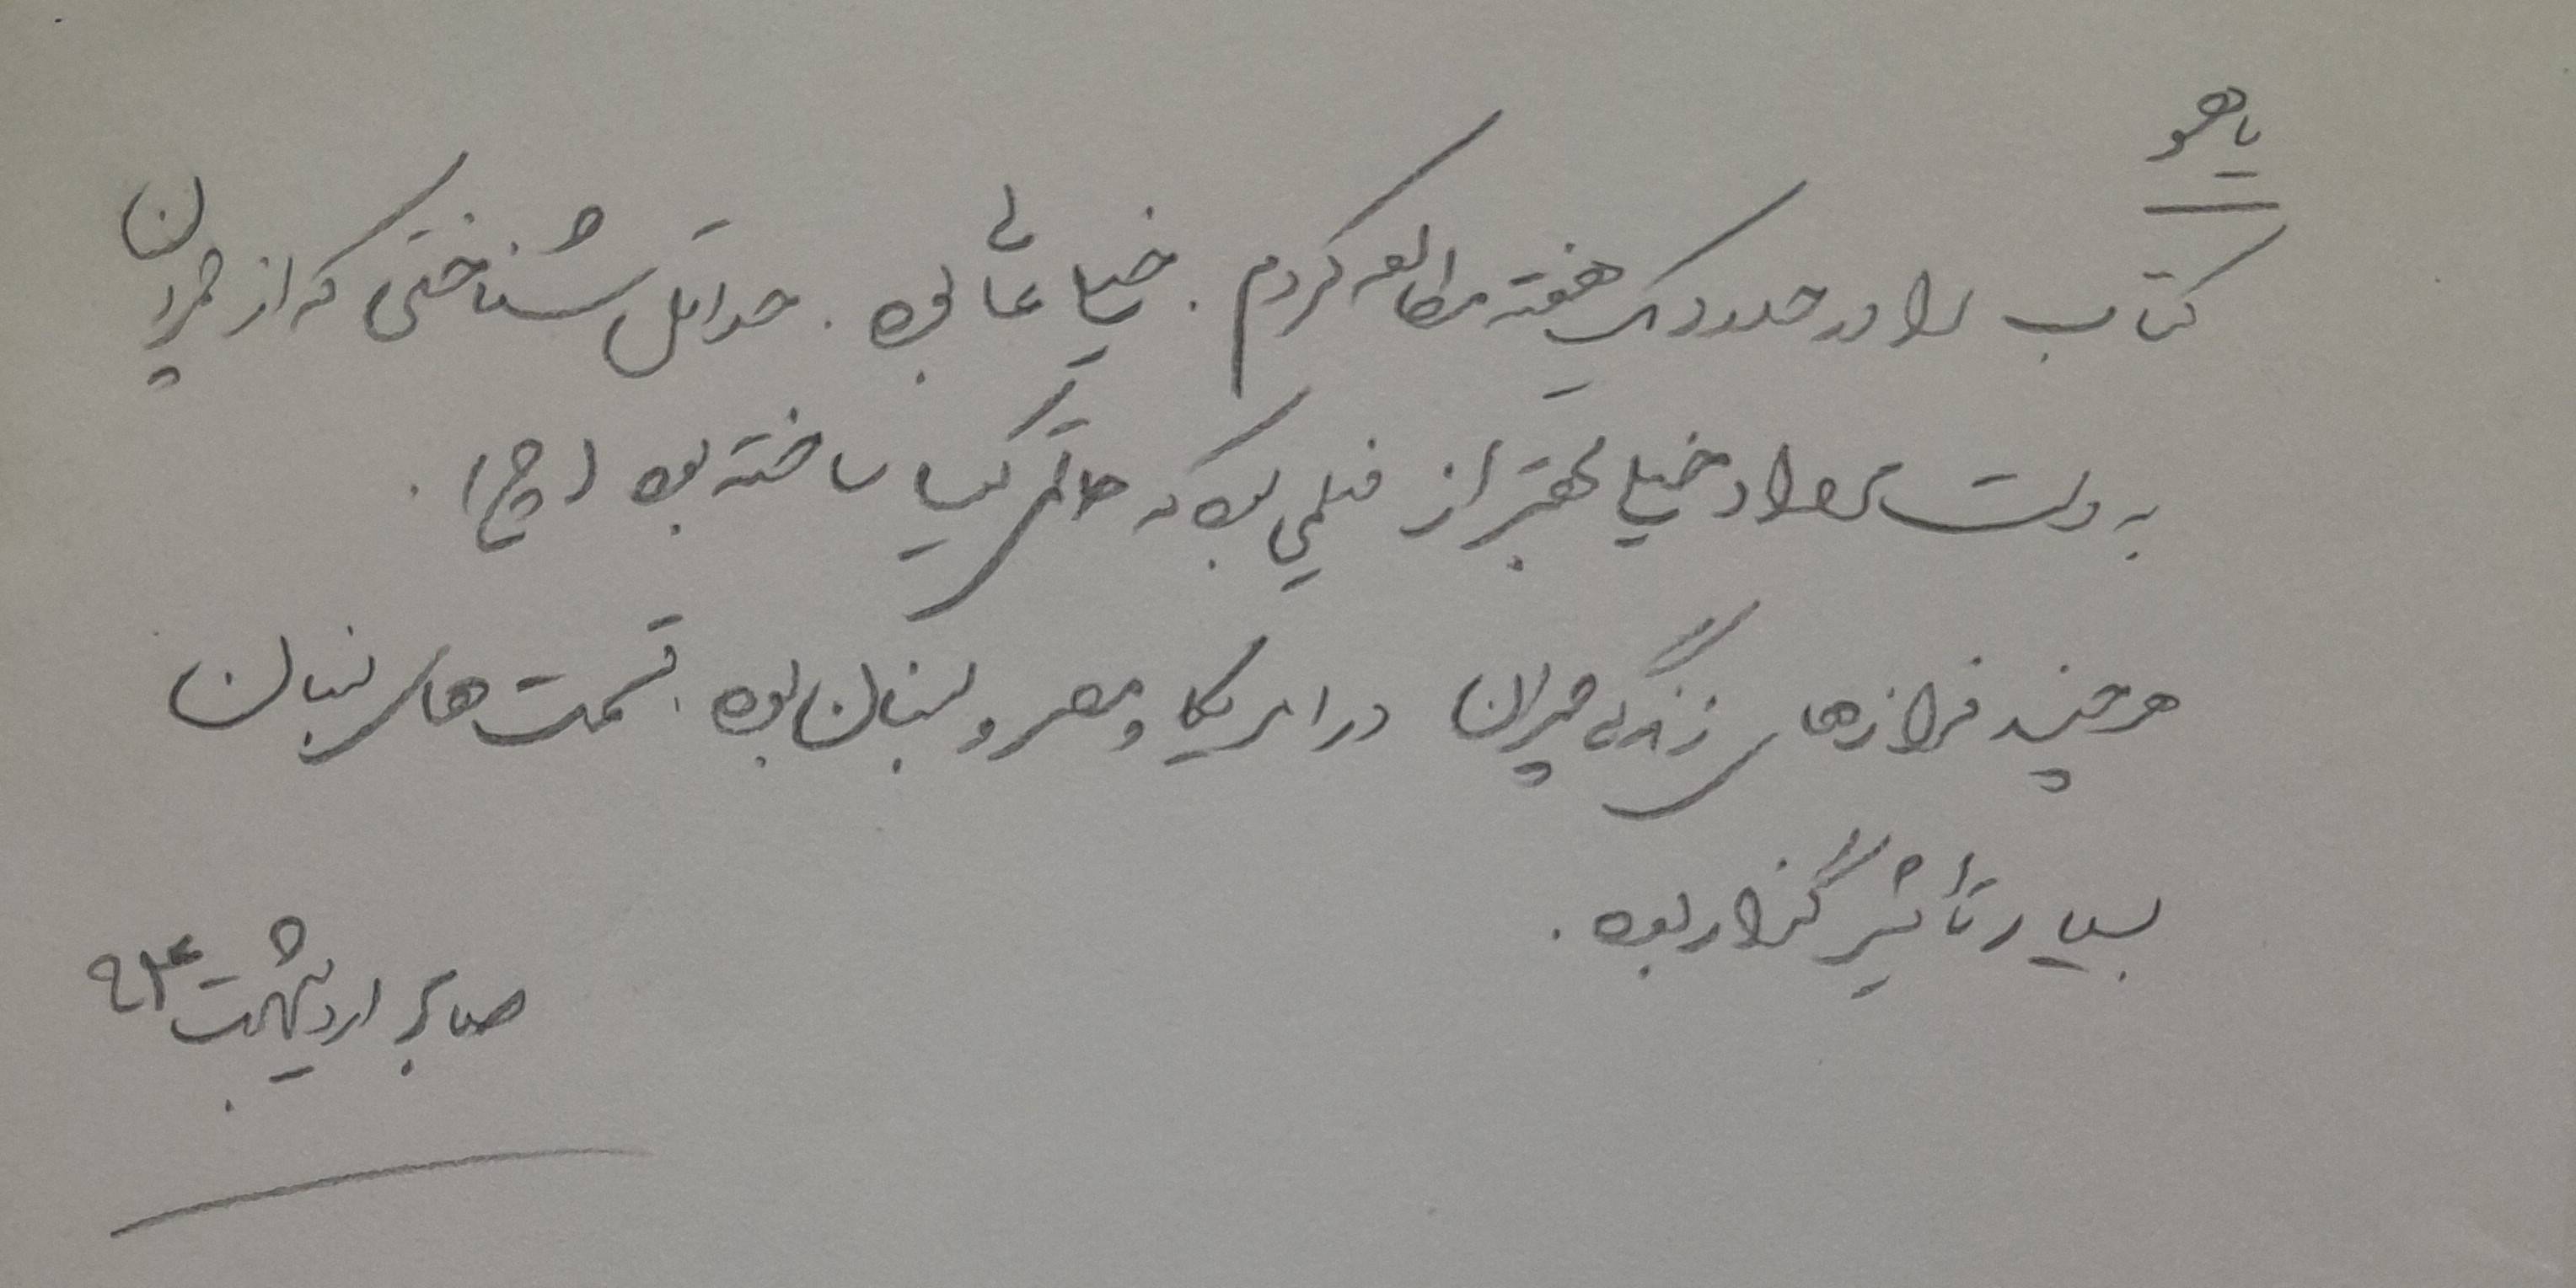 یا هو
کتاب را در حدود یک هفته مطالعه کردم. خیلی عالی بود. حداقل شناختی که از چمران
به دست می‌داد خیلی بهتر از فیلمی بود که حاتمی کیا ساخته بود (چ).
هر چند فرازهای زندگی چمران در امریکا و مصر و لبنان بود. قسمت های لبنان
بسیار تأثیر گذار بود.
صابر اردیبهشت ۹۴